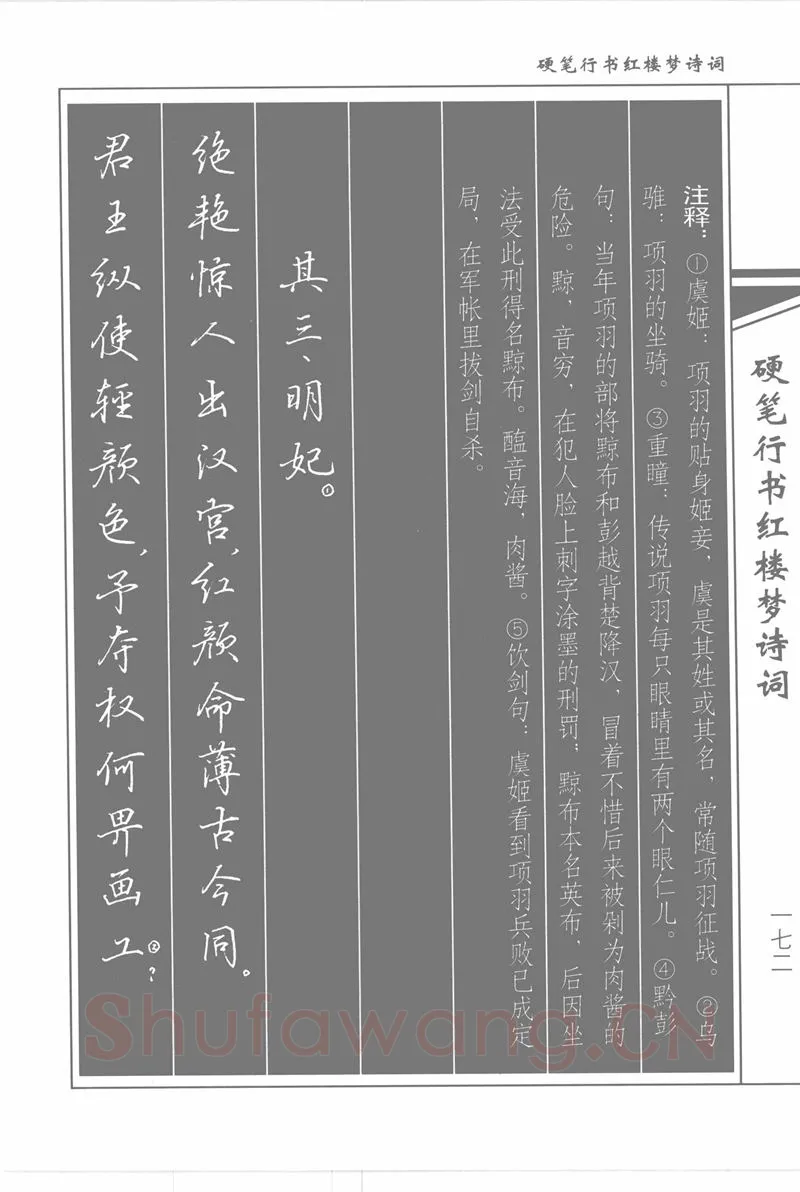 硬笔行书红楼梦诗词
注释：①虞姬：项羽的贴身姬妾，虞是其姓或其名，常随项羽征战。②乌
骓：项羽的坐骑。③重瞳：传说项羽每只眼睛里有两个眼仁儿。④黔彭
句：当年项羽的部将黥布和彭越背楚降汉，冒着不惜后来被剁为肉酱的
危险。黥，音穷，在犯人脸上刺字涂墨的刑罚；黥布本名英布，后因坐
法受此刑得名黥布。醢音海，肉酱。⑤饮剑句：虞姬看到项羽兵败已成定
局，在军帐里拔剑自杀。
其三、明妃。①
绝艳惊人出汉宫，红颜命薄古今同。
君王纵使轻颜色，予夺权何畀画工②？
硬笔行书红楼梦诗词
一七二
Shufawang.CN